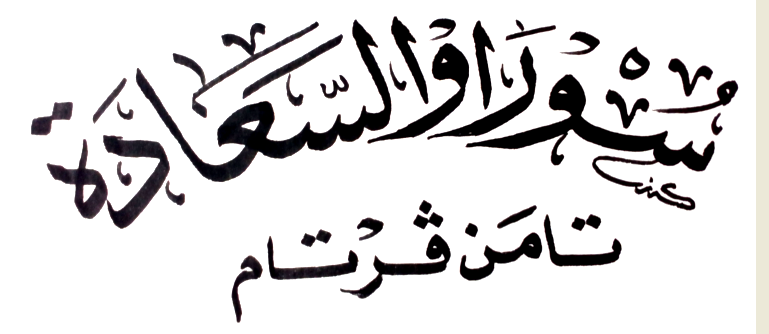 سُوْرَاوْ السَّعَادَة
تامَن ڤرْتام